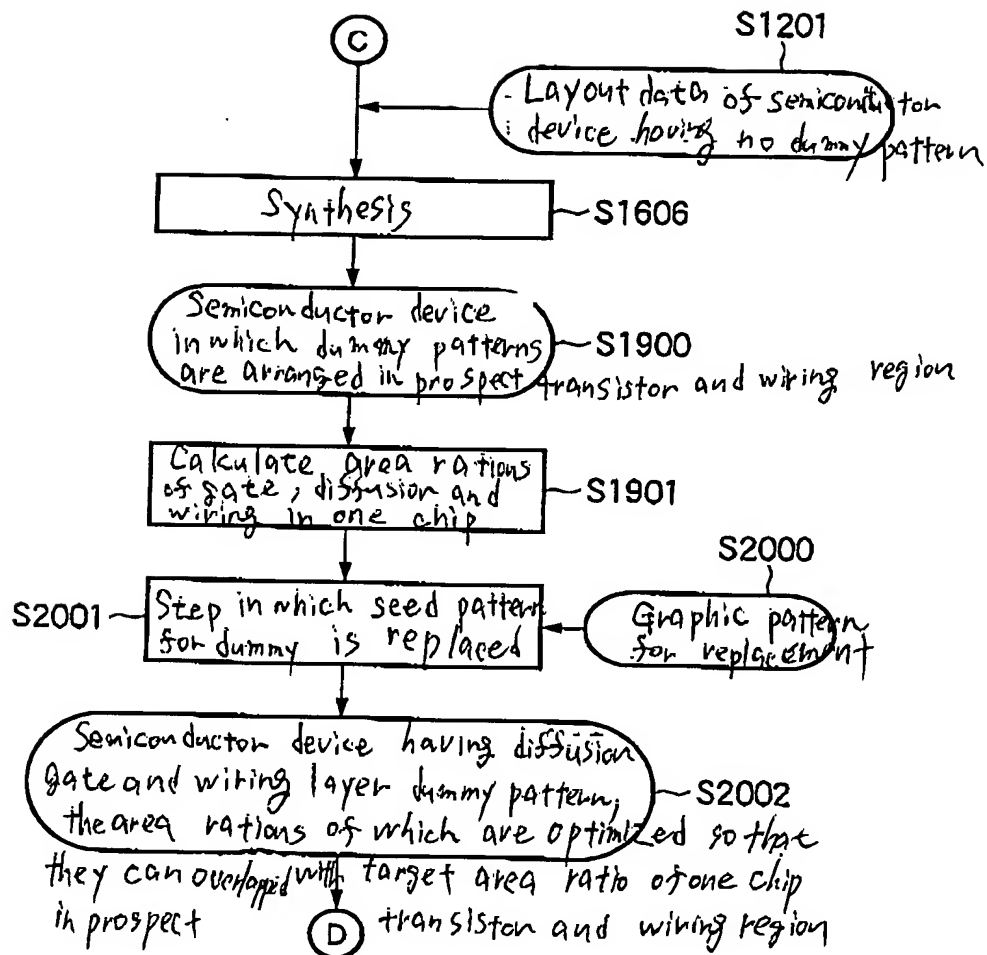 C
S1201
Layout data of semiconductor
device having no dummy pattern
Synthesis
S1606
Semiconductor device
in which dummy patterns
are arranged in prospect transistor and wiring region
S1900
Calculate area rations
of gate, diffusion and
wiring in one chip
S1901
S2000
S2001
Step in which seed pattern
for dummy is replaced
Graphic pattern
for replacement
Semiconductor device having diffusion
gate and wiring layer dummy pattern,
the area rations of which are optimized so that
they can overlapped with target area ratio of one chip
in prospect transistor and wiring region
S2002
D